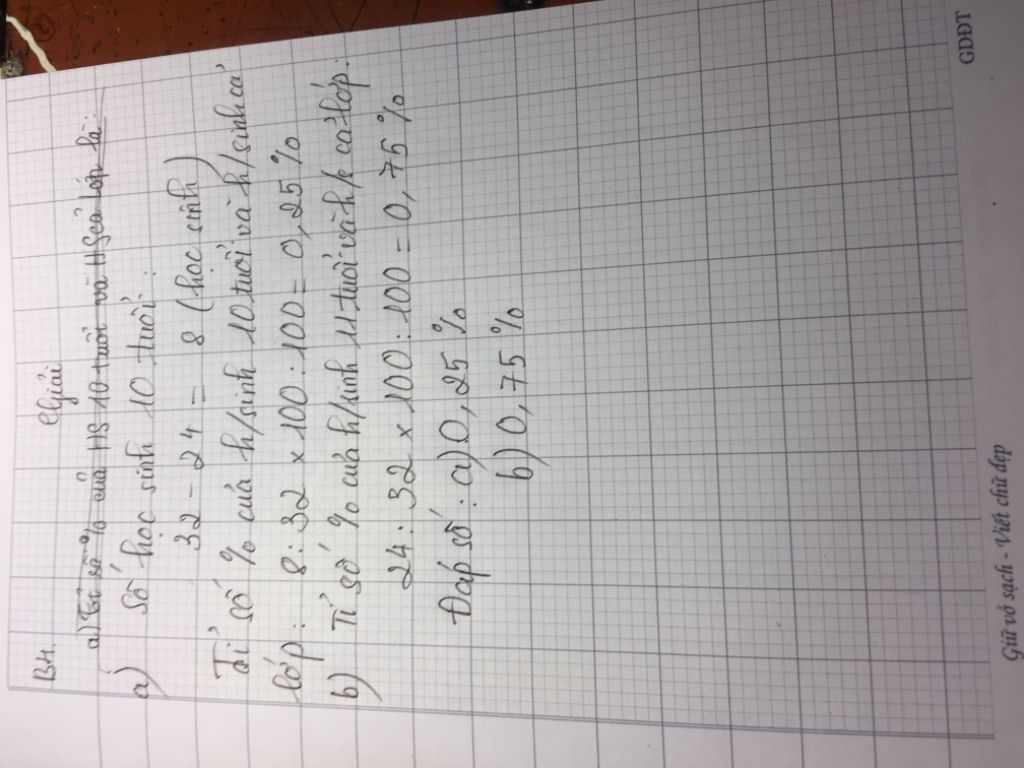 B4. Giải
a) Tỉ số % của HS 10 tuổi và HS cả lớp là:
a) Số học sinh 10 tuổi:
32 - 24 = 8 (học sinh)
Tỉ số % của h/sinh 10 tuổi và h/sinh cả
lớp: 8 : 32 x 100 : 100 = 0,25%
b) Tỉ số % của h/sinh 11 tuổi và h/s cả lớp:
24 : 32 x 100 : 100 = 0,75%
Đáp số: a) 0,25%
b) 0,75%
Giữ vở sạch - Viết chữ đẹp GDĐT